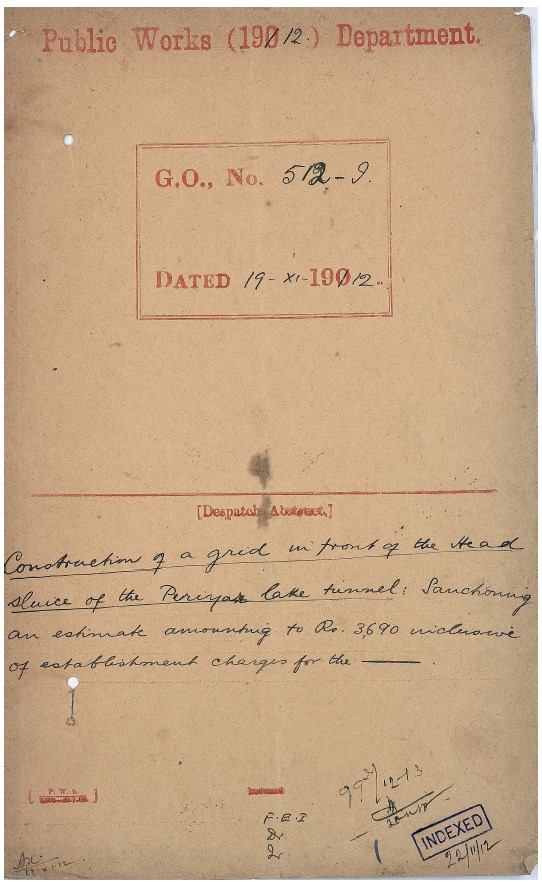 Public Works (1912.) Department.
G.O., No. 512-I.
DATED 19-XI-1912.
[Despatch Abstract.]
Construction of a grid in front of the Head
sluice of the Periyar lake tunnel: Sanctioning
an estimate amounting to Rs. 3,690 inclusive
of establishment charges for the ———.
P. W. D.
Indexed
99 12-13
F.E.I
Dr
INDEXED
22/11/12
12.XI.12.